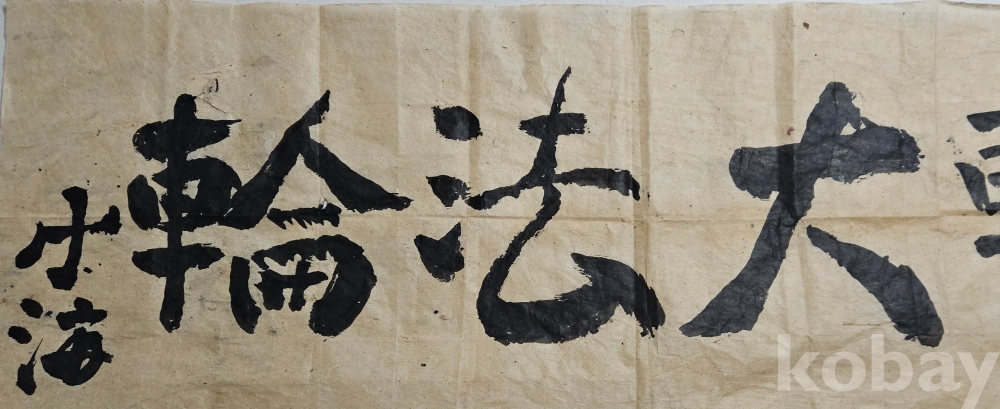 大法輪
海
kobay